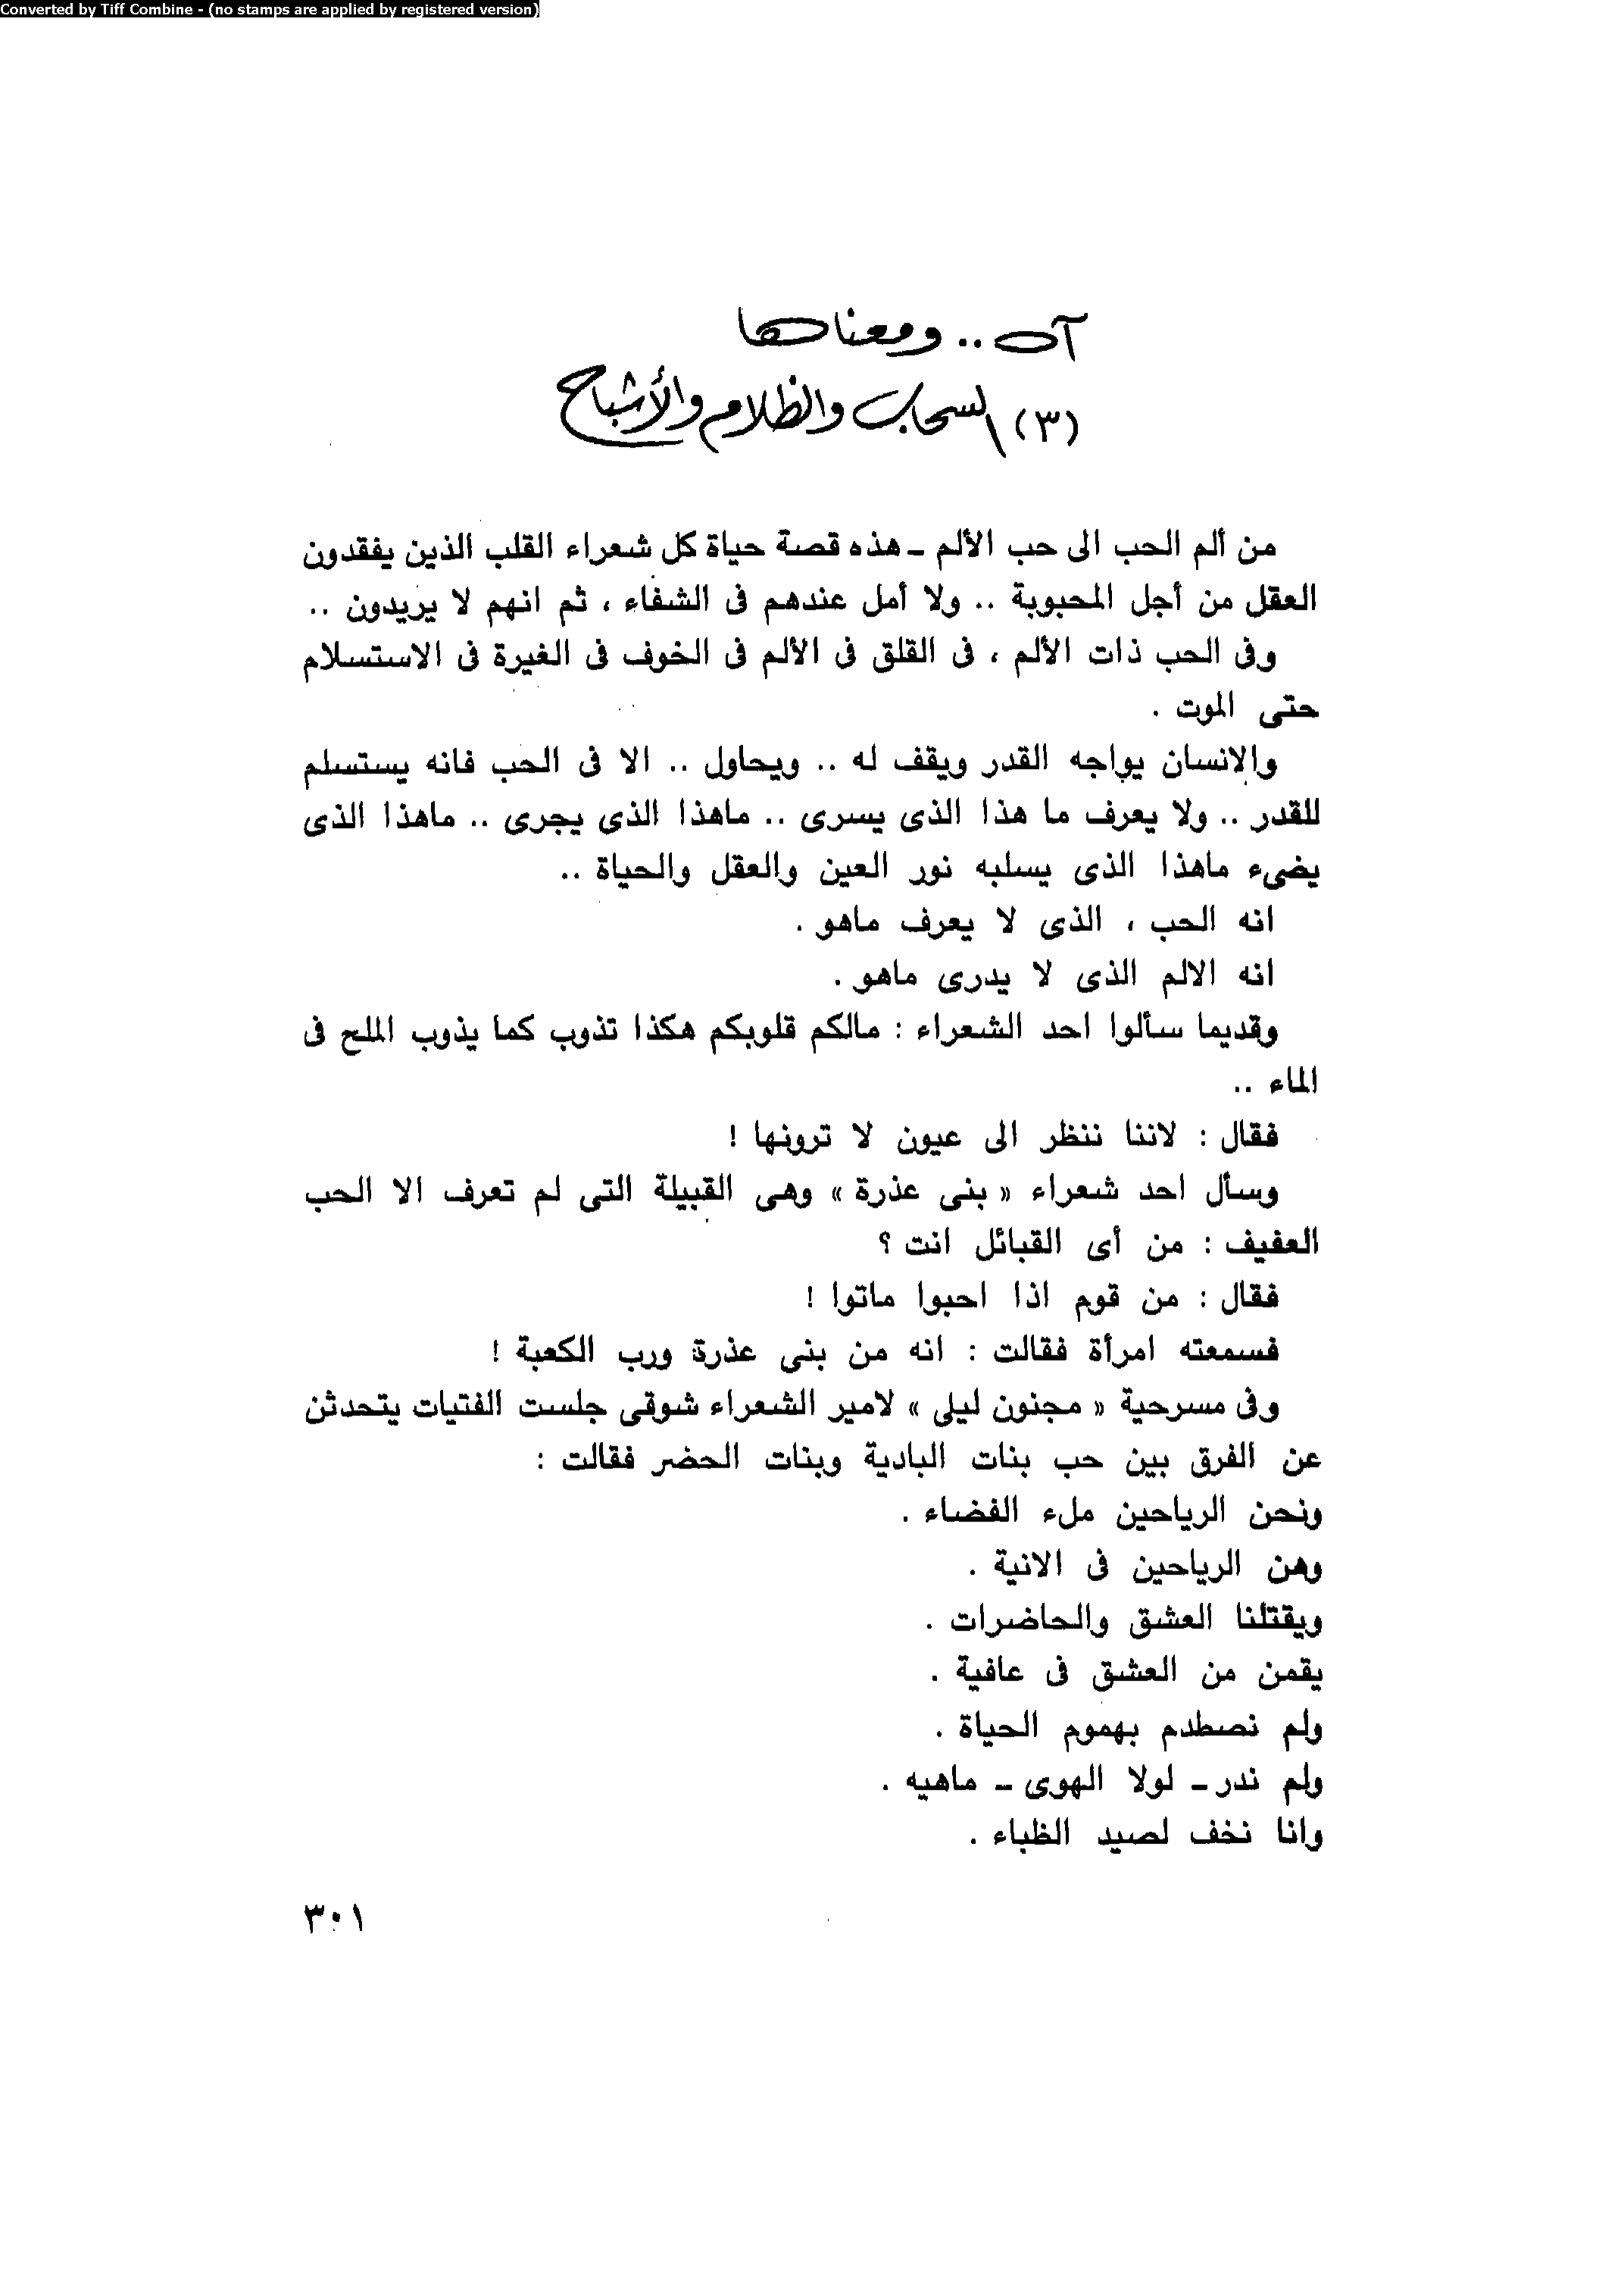 Converted by Tiff Combine - (no stamps are applied by registered version)
آه .. ومعناها
(٣) السحاب والظلام والأشباح
من ألم الحب الى حب الألم ـ هذه قصة حياة كل شعراء القلب الذين يفقدون
العقل من أجل المحبوبة .. ولا أمل عندهم فى الشفاء ، ثم انهم لا يريدون ..
وفى الحب ذات الألم ، فى القلق فى الألم فى الخوف فى الغيرة فى الاستسلام
حتى الموت .
والانسان يواجه القدر ويقف له .. ويحاول .. الا فى الحب فانه يستسلم
للقدر .. ولا يعرف ما هذا الذى يسرى .. ماهذا الذى يجرى .. ماهذا الذى
يضىء ماهذا الذى يسلبه نور العين والعقل والحياة ..
انه الحب ، الذى لا يعرف ماهو .
انه الالم الذى لا يدرى ماهو .
وقديما سألوا احد الشعراء : مالكم قلوبكم هكذا تذوب كما يذوب الملح فى
الماء ..
فقال : لاننا ننظر الى عيون لا ترونها !
وسأل احد شعراء « بنى عذرة » وهى القبيلة التى لم تعرف الا الحب
العفيف : من أى القبائل انت ؟
فقال : من قوم اذا احبوا ماتوا !
فسمعته امرأة فقالت : انه من بنى عذرة ورب الكعبة !
وفى مسرحية « مجنون ليلى » لامير الشعراء شوقى جلست الفتيات يتحدثن
عن الفرق بين حب بنات البادية وبنات الحضر فقالت :
ونحن الرياحين ملء الفضاء .
وهن الرياحين فى الانية .
ويقتلنا العشق والحاضرات .
يقمن من العشق فى عافية .
ولم نصطدم بهموم الحياة .
ولم ندر ـ لولا الهوى ـ ماهيه .
وانا نخف لصيد الظباء .
٣٠١